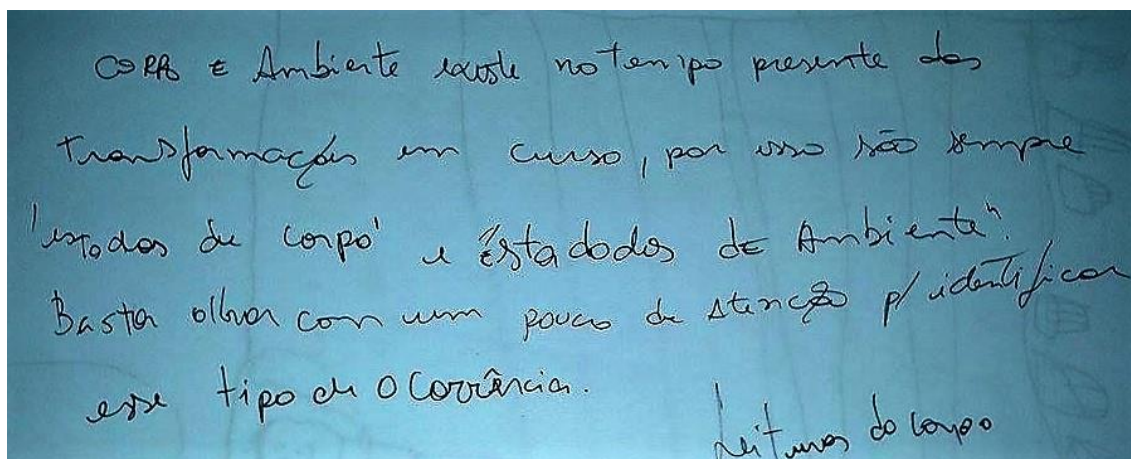 CORPO E Ambiente existe no Tempo presente das
Transformações em curso, por isso são sempre
'estados de corpo' e "Estadodos de Ambiente".
Basta olhar com um pouco de Atenção p/ identificar
esse tipo de Ocorrência.
Leituras do corpo